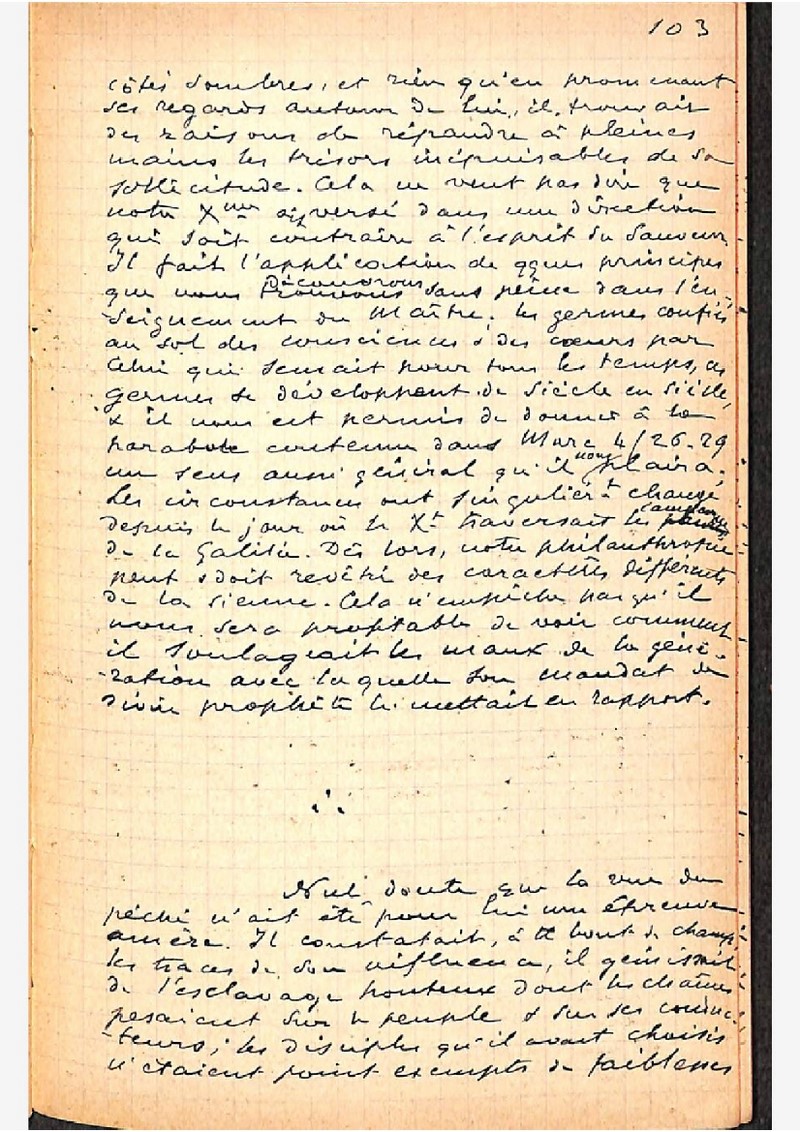 103
côtés sombres, et rien qu'en promenant
ses regards autour de lui, il trouvait
des raisons de répandre à pleines
mains les trésors inépuisables de sa
sollicitude. Cela ne veut pas dire que
notre Xme ait versé dans une direction
qui soit contraire à l'esprit du Sauveur.
Il fait l'application de qques principes
que nous découvrons sans peine dans l'en-
-seignement du Maître; les germes confiés
au sol des consciences & des cœurs par
Celui qui semait pour tous les temps, ces
germes se développent de siècle en siècle,
& il nous est permis de donner à la
parabole contenue dans Marc 4/26-29
un sens aussi général qu'il nous plaira.
Les circonstances ont singulièrt changé
depuis le jour où le Xt traversait les
de la Galilée. Dès lors, notre philanthropie
peut & doit revêtir des caractères différents
de la sienne. Cela n'empêche pas qu'il
nous sera profitable de voir comment
il soulageait les maux de la géné-
-ration avec laquelle son mandat de
divin prophète le mettait en rapport.
∴
Nul doute que la vue du
péché n'ait été pour lui une épreuve
amère. Il constatait, à tt bout de champ,
les traces de son influence, il gémissait
de l'esclavage honteux dont les chaînes
pesaient sur le peuple & sur ses conduc-
-teurs; les disciples qu'il avait choisis
n'étaient point exempts de faiblesses